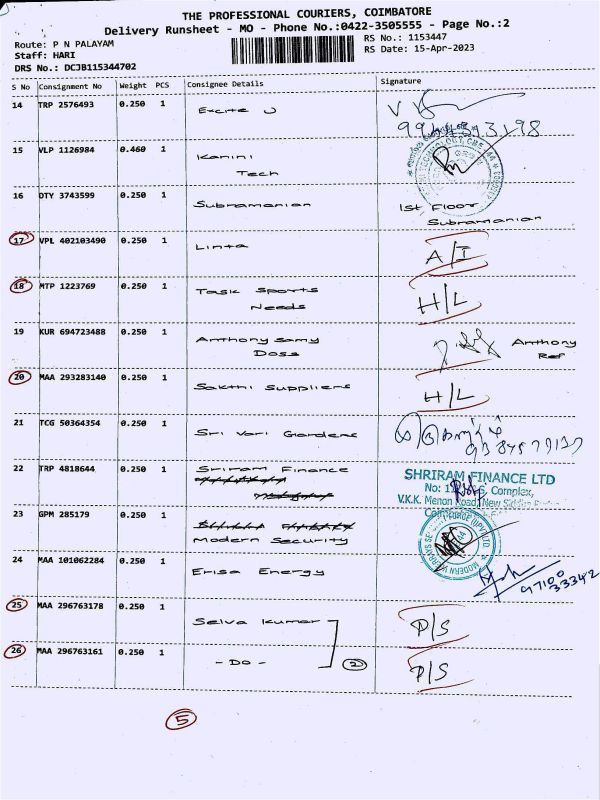 THE PROFESSIONAL COURIERS, COIMBATORE
Delivery Runsheet - MO - Phone No.:0422-3505555 - Page No.:2
Route: P N PALAYAM
RS No.: 1153447
Staff: HARI
RS Date: 15-Apr-2023
DRS No.: DCJB115344702
S No Consignment No Weight PCS Consignee Details Signature
14 TRP 2576493 0.250 1 Excite U
15 VLP 1126984 0.460 1 Kanini
Tech
16 DTY 3743599 0.250 1 Subramanian 1st Floor
Subramanian
17 VPL 402103490 0.250 1 Linta A/I
18 MTP 1223769 0.250 1 Task Sports H/L
Needs
19 KUR 694723488 0.250 1 Anthony Samy Anthony
Doss Ref
20 MAA 293283140 0.250 1 Sakthi Suppliers H/L
21 TCG 50364354 0.250 1 Sri Vari Gardens
22 TRP 4818644 0.250 1 Sriram Finance SHRIRAM FINANCE LTD
No: Complex,
V.K.K. Menon Road, New
23 GPM 285179 0.250 1
Modern Security
24 MAA 101062284 0.250 1 Erisa Energy
97100
33342
25 MAA 296763178 0.250 1 Selva Kumar P/S
26 MAA 296763161 0.250 1 - Do - 2 P/S
5